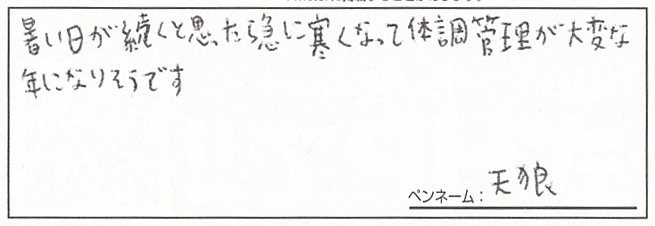 暑い日が続くと思ったら急に寒くなって体調管理が大変な
年になりそうです
ペンネーム：天狼